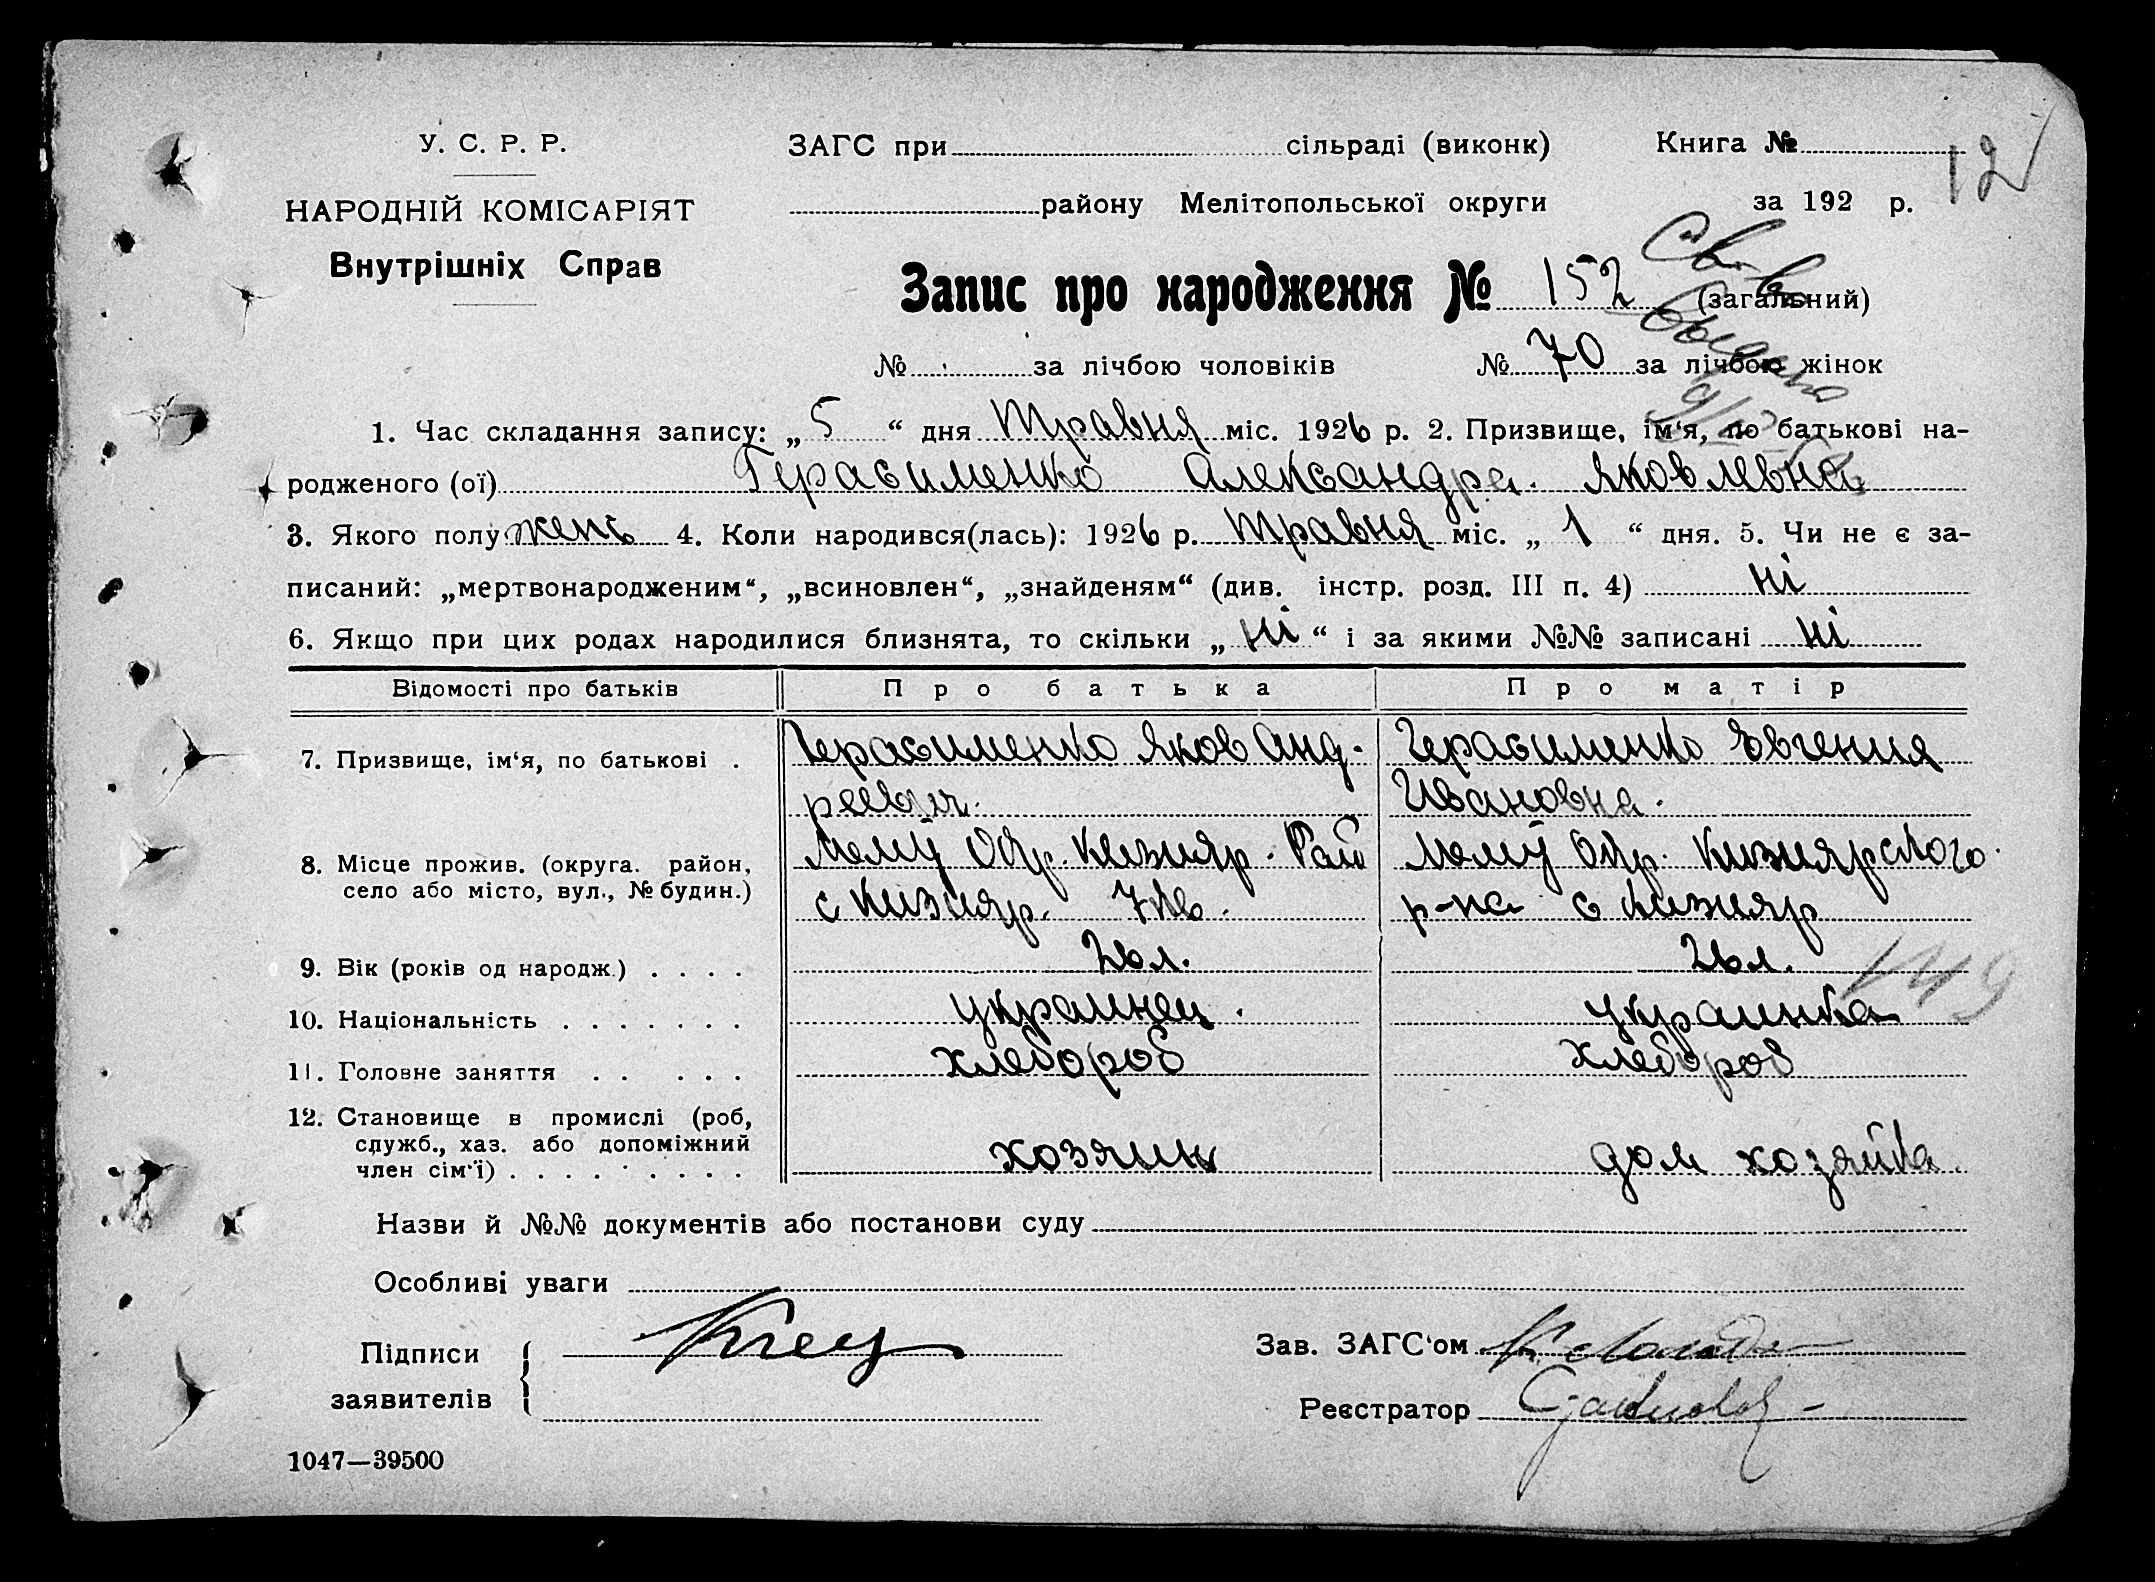 У. С. Р. Р.
НАРОДНІЙ КОМІСАРІЯТ
Внутрішніх Справ
ЗАГС при сільраді (виконк) Книга №
12
району Мелітопольської округи за 192 р.
Запис про народження № 152 (загальний)
Св-во
выдано
№ за лічбою чоловіків № 70 за лічбою жінок
1. Час складання запису: „5“ дня Травня міс. 1926 р. 2. Призвище, ім‘я, по батькові на-
родженого (ої) Герасименко Александра Яковлевна
3. Якого полу жень 4. Коли народився(лась): 1926 р. Травня міс. „1“ дня. 5. Чи не є за-
писаний: „мертвонародженим“, „всиновлен“, „знайденям“ (див. інстр. розд. III п. 4) ні
6. Якщо при цих родах народилися близнята, то скільки „ні“ і за якими №№ записані ні
Відомості про батьків Про батька Про матір
7. Призвище, ім‘я, по батькові . Герасименко Яков Анд- Герасименко Евгения
реевич. Ивановна.
8. Місце прожив. (округа. район, Мелит Окр. Кизияр. Рай Мелит Окр. Кизиярского
село або місто, вул., № будин.) с Кизияр. 7 кв. р-на с Кизияр
9. Вік (років од народж.) . . . . 26 л. 26 л.
149
10. Національність . . . . . . . украинец. украинка
11. Головне заняття . . . . . хлебороб хлебороб
12. Становище в промислі (роб,
служб., хаз. або допоміжний
член сім‘ї) . . . . . . . . хозяин дом хозяйка
Назви й №№ документів або постанови суду
Особливі уваги
Підписи Отец Зав. ЗАГС‘ом
заявителів Реєстратор
1047—39500